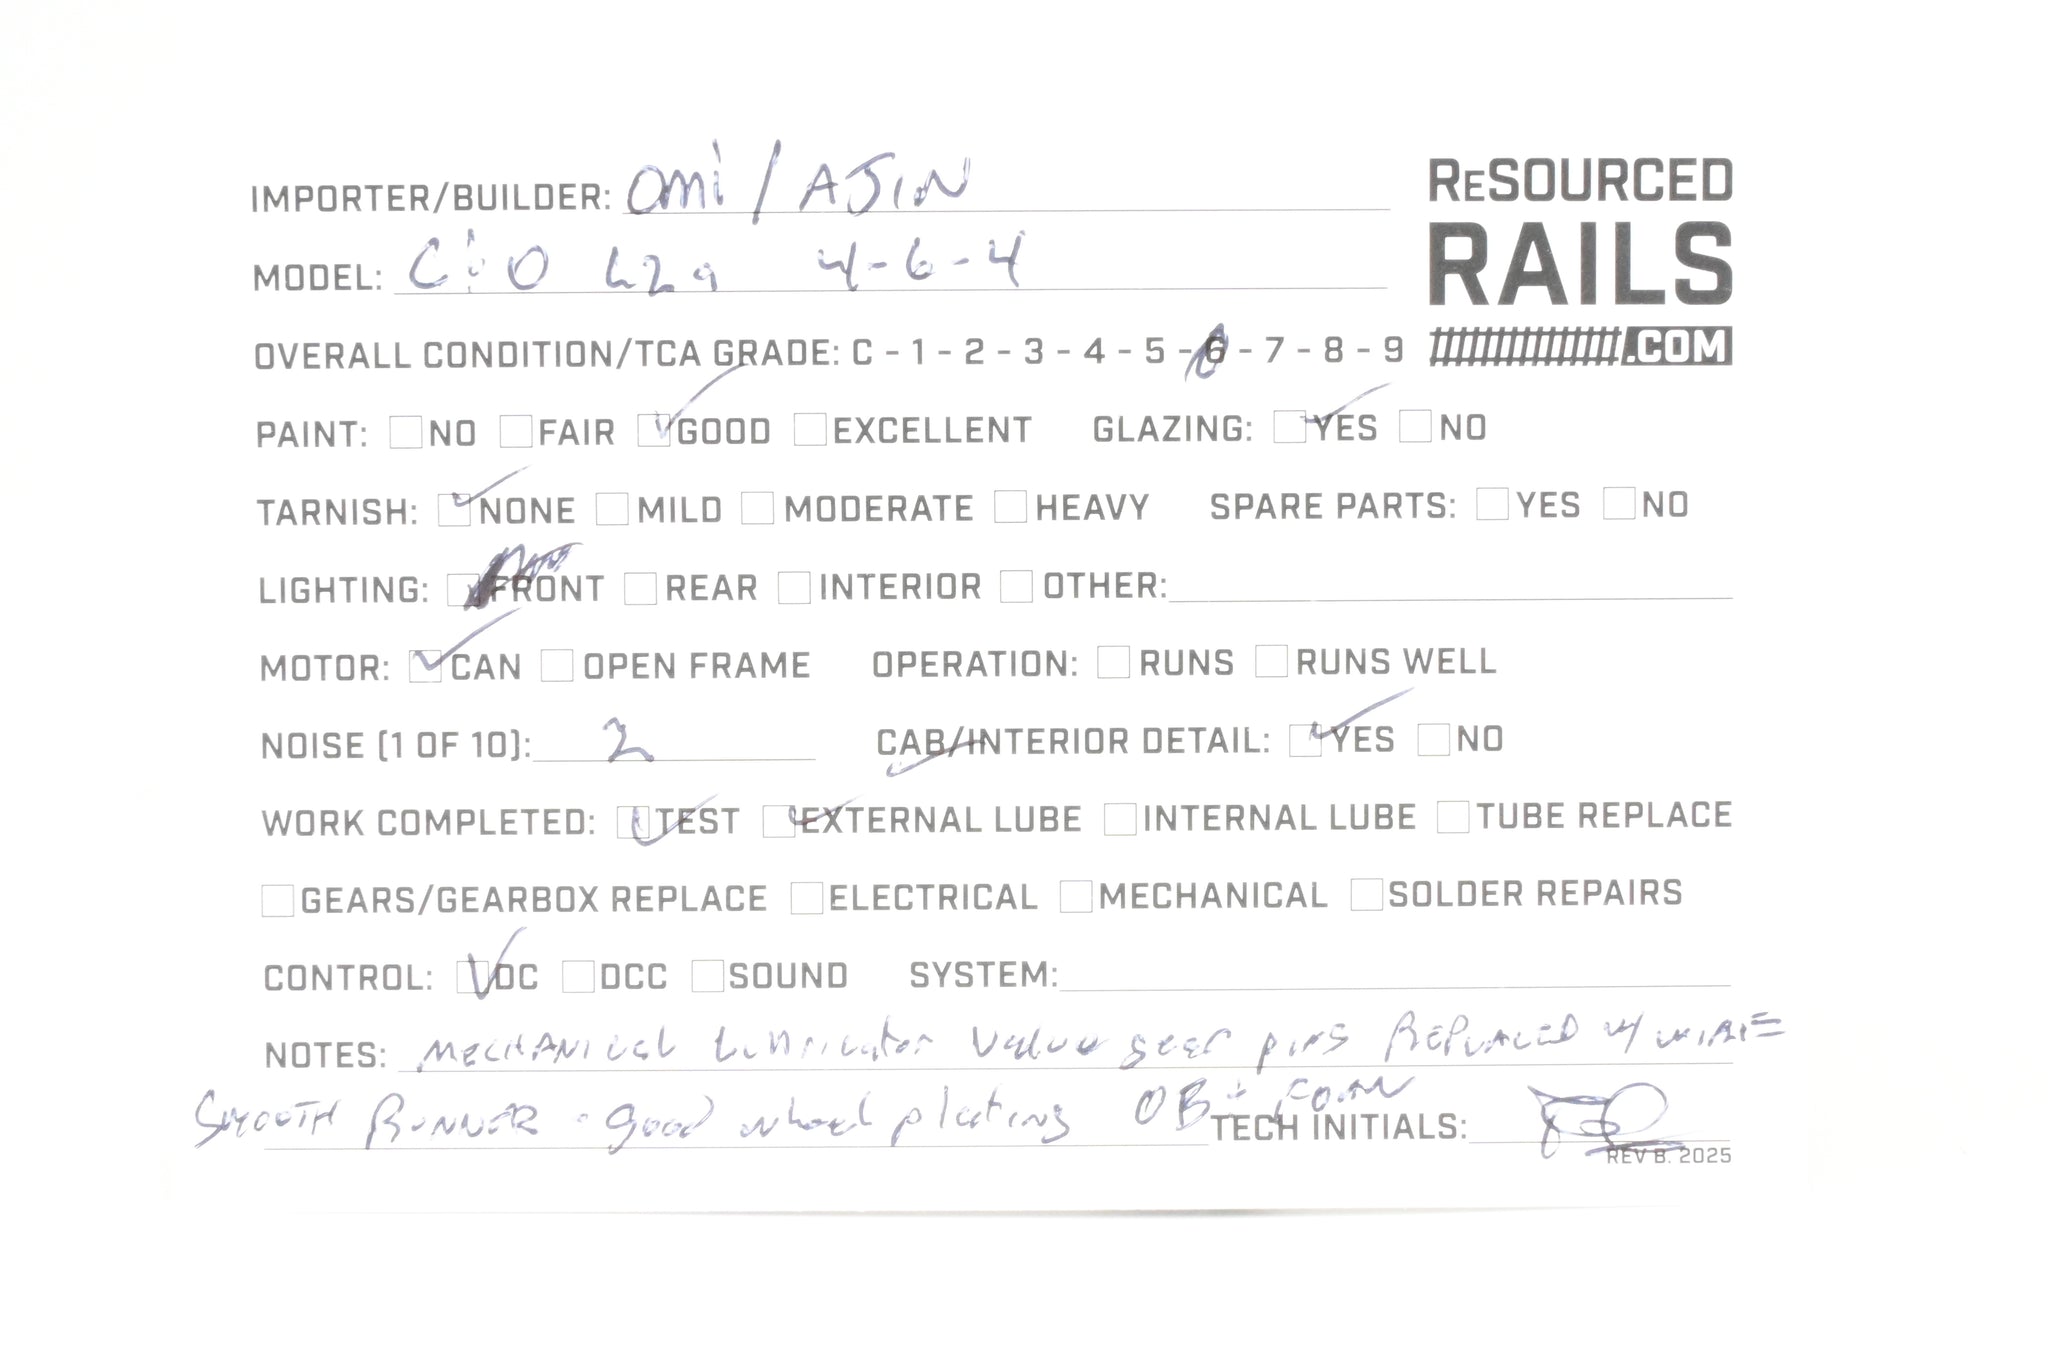 IMPORTER/BUILDER: OMI / AJIN
ReSOURCED
RAILS
.COM
MODEL: C&O L2a 4-6-4
OVERALL CONDITION/TCA GRADE: C - 1 - 2 - 3 - 4 - 5 - 6 - 7 - 8 - 9
PAINT: NO FAIR GOOD EXCELLENT GLAZING: YES NO
TARNISH: NONE MILD MODERATE HEAVY SPARE PARTS: YES NO
LIGHTING: FRONT REAR INTERIOR OTHER:
MOTOR: CAN OPEN FRAME OPERATION: RUNS RUNS WELL
NOISE (1 OF 10): 2 CAB/INTERIOR DETAIL: YES NO
WORK COMPLETED: TEST EXTERNAL LUBE INTERNAL LUBE TUBE REPLACE
GEARS/GEARBOX REPLACE ELECTRICAL MECHANICAL SOLDER REPAIRS
CONTROL: DC DCC SOUND SYSTEM:
NOTES: MECHANICAL Lubricator Valve gear pins REPLACED w/ WIRE
SMOOTH RUNNER - good wheel plating OB + FOAM
TECH INITIALS:
REV B. 2025